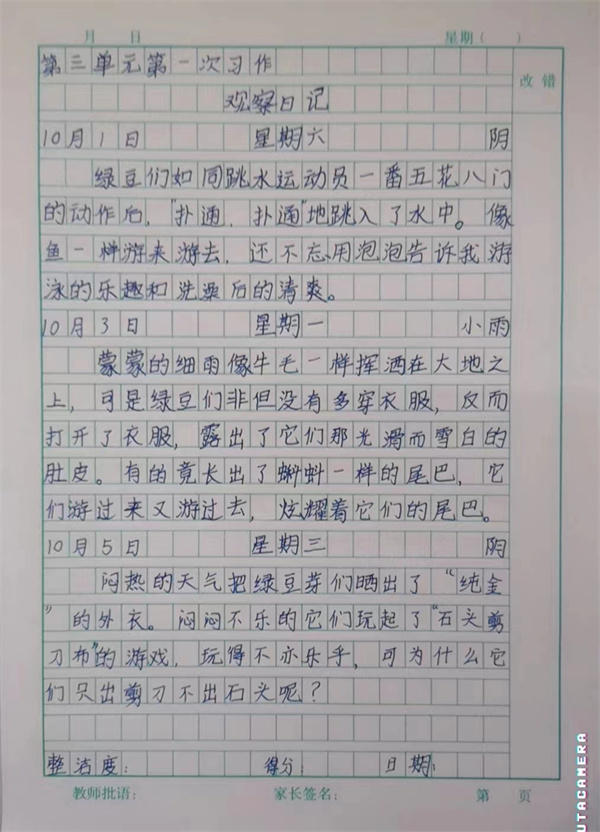 月 日 星期( )
第三单元第一次习作
改错
观察日记
10月1日 星期六 阴
绿豆们如同跳水运动员一番五花八门
的动作后，“扑通，扑通”地跳入了水中。像
鱼一样游来游去，还不忘用泡泡告诉我游
泳的乐趣和洗澡后的清爽。
10月3日 星期一 小雨
蒙蒙的细雨像牛毛一样挥洒在大地之
上，可是绿豆们非但没有多穿衣服，反而
打开了衣服，露出了它们那光滑而雪白的
肚皮。有的竟长出了蝌蚪一样的尾巴，它
们游过来又游过去，炫耀着它们的尾巴。
10月5日 星期三 阴
闷热的天气把绿豆芽们晒出了“纯金
”的外衣。闷闷不乐的它们玩起了“石头剪
刀布”的游戏，玩得不亦乐乎，可为什么它
们只出剪刀不出石头呢？
整洁度： 得分： 日期：
教师批语： 家长签名： 第 页
UTACAMERA